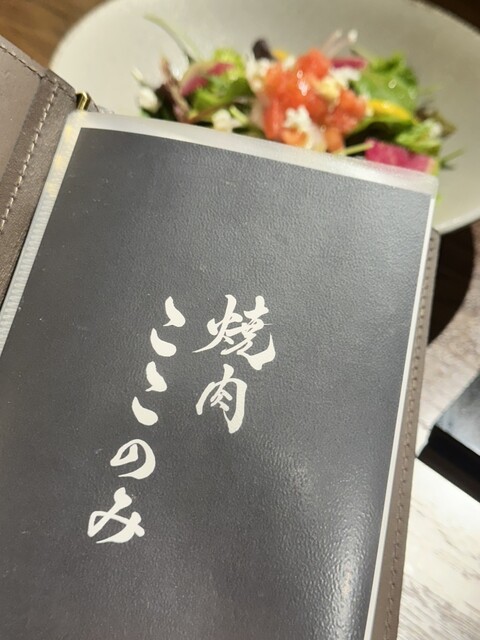 焼肉
ここのみ